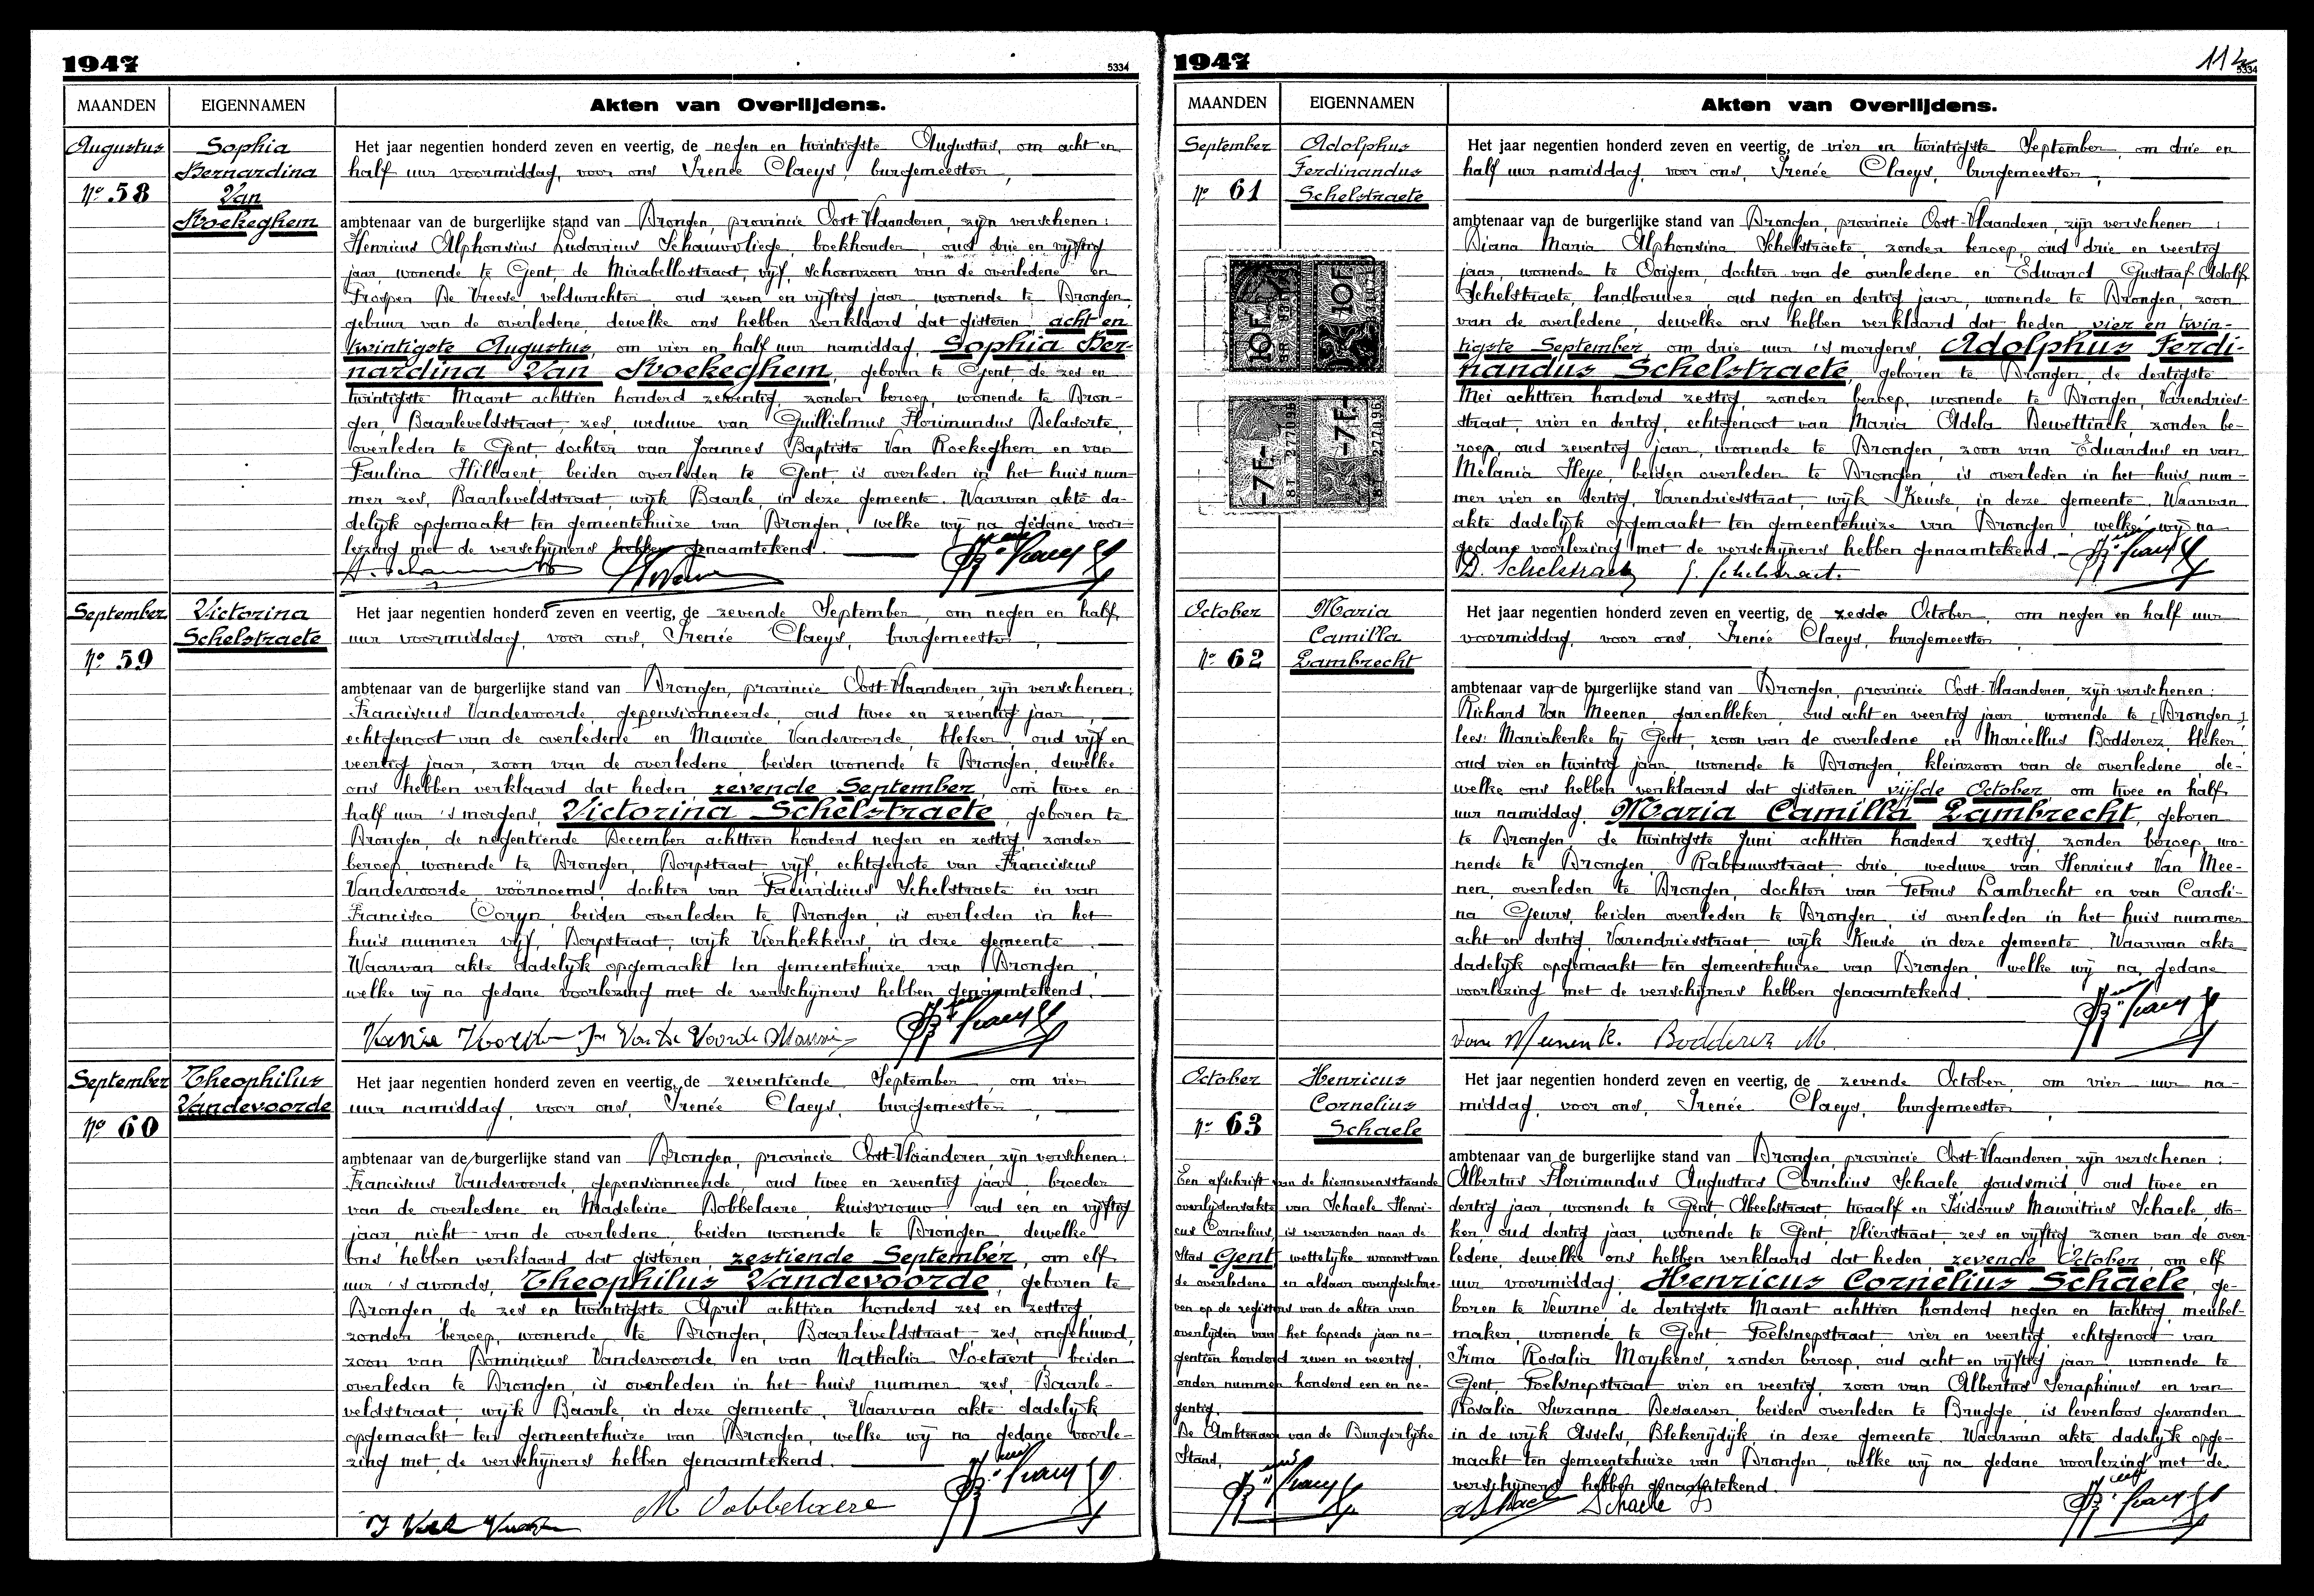 1947
5334
MAANDEN
EIGENNAMEN
Akten van Overlijdens.
Augustus
Nº 58
Sophia
Bernardina
Van
Roekeghem
Het jaar negentien honderd zeven en veertig, de negen en twintigste Augustus, om acht en
half uur voormiddag, voor ons Irenée Claeys, burgemeester,
ambtenaar van de burgerlijke stand van Drongen, provincie Oost-Vlaanderen, zijn verschenen:
Henricus Alphonsius Ludovicus Schauvvliege, boekhouder, oud drie en vijftig
jaar, wonende te Gent, de Mirabellostraat, vijf, schoonzoon van de overledene en
Prosper De Vreese, veldwachter, oud zeven en vijftig jaar, wonende te Drongen,
gebuur van de overledene, dewelke ons hebben verklaard dat gisteren, acht en
twintigste Augustus, om vier en half uur namiddag, Sophia Ber-
nardina Van Roekeghem, geboren te Gent, de zes en
twintigste Maart achttien honderd zeventig, zonder beroep, wonende te Dron-
gen, Baarleveldstraat, zes, weduwe van Guillielmus Florimundus Delasorte,
overleden te Gent, dochter van Joannes Baptista Van Roekeghem en van
Paulina Hillaert, beiden overleden te Gent, is overleden in het huis num-
mer zes, Baarleveldstraat, wijk Baarle, in deze gemeente. Waarvan akte da-
delijk opgemaakt ten gemeentehuize van Drongen, welke wij na gedane voor-
lezing met de verschijners hebben genaamtekend.
September
Nº 59
Victorina
Schelstraete
Het jaar negentien honderd zeven en veertig, de zevende September, om negen en half
uur voormiddag, voor ons, Irenée Claeys, burgemeester,
ambtenaar van de burgerlijke stand van Drongen, provincie Oost-Vlaanderen, zijn verschenen:
Franciscus Vandevoorde, gepensionneerde, oud twee en zeventig jaar,
echtgenoot van de overledene en Maurice Vandevoorde, bleker, oud vijf en
veertig jaar, zoon van de overledene, beiden wonende te Drongen, dewelke
ons hebben verklaard dat heden, zevende September, om twee en
half uur 's morgens, Victorina Schelstraete, geboren te
Drongen, de negentiende December achttien honderd negen en zestig, zonder
beroep, wonende te Drongen, Dorpstraat, vijf, echtgenote van Franciscus
Vandevoorde, voornoemd, dochter van Schelstraete en van
Francisca Coryn, beiden overleden te Drongen, is overleden in het
huis nummer vijf, Dorpstraat, wijk Vierhekkens, in deze gemeente.
Waarvan akte dadelijk opgemaakt ten gemeentehuize van Drongen,
welke wij na gedane voorlezing met de verschijners hebben genaamtekend.
September
Nº 60
Theophilus
Vandevoorde
Het jaar negentien honderd zeven en veertig, de zeventiende September, om vier
uur namiddag, voor ons, Irenée Claeys, burgemeester,
ambtenaar van de burgerlijke stand van Drongen, provincie Oost-Vlaanderen, zijn verschenen:
Franciscus Vandevoorde, gepensionneerde, oud twee en zeventig jaar, broeder
van de overledene en Madeleine Dobbelaere, kuisvrouw, oud een en vijftig
jaar, nicht van de overledene, beiden wonende te Drongen, dewelke
ons hebben verklaard dat gisteren, zestiende September, om elf
uur 's avonds, Theophilus Vandevoorde, geboren te
Drongen, de zes en twintigste April achttien honderd zes en zestig,
zonder beroep, wonende te Drongen, Baarleveldstraat, zes, ongehuwd,
zoon van Dominicus Vandevoorde en van Nathalia Soetaert, beiden
overleden te Drongen, is overleden in het huis nummer zes, Baarle-
veldstraat, wijk Baarle, in deze gemeente. Waarvan akte dadelijk
opgemaakt ten gemeentehuize van Drongen, welke wij na gedane voorle-
zing met de verschijners hebben genaamtekend.
M Dobbelaere
1947
114
5334
MAANDEN
EIGENNAMEN
Akten van Overlijdens.
September
Nº 61
Adolphus
Ferdinandus
Schelstraete
10F
10F
-7F-
-7F-
Het jaar negentien honderd zeven en veertig, de vier en twintigste September, om drie en
half uur namiddag, voor ons, Irenée Claeys, burgemeester,
ambtenaar van de burgerlijke stand van Drongen, provincie Oost-Vlaanderen, zijn verschenen:
Diana Maria Alphonsina Schelstraete, zonder beroep, oud drie en veertig
jaar, wonende te Ooigem, dochter van de overledene en Edward Gustaaf Adolf
Schelstraete, landbouwer, oud negen en dertig jaar, wonende te Drongen, zoon
van de overledene, dewelke ons hebben verklaard dat heden, vier en twin-
tigste September, om drie uur 's morgens, Adolphus Ferdi-
nandus Schelstraete, geboren te Drongen, de dertigste
Mei achttien honderd zestig, zonder beroep, wonende te Drongen, Varendries-
straat, vier en dertig, echtgenoot van Maria Adela Dewettinck, zonder be-
roep, oud zeventig jaar, wonende te Drongen, zoon van Eduardus en van
Melania Heye, beiden overleden te Drongen, is overleden in het huis num-
mer vier en dertig, Varendriesstraat, wijk Keuse, in deze gemeente. Waarvan
akte dadelijk opgemaakt ten gemeentehuize van Drongen, welke wij na
gedane voorlezing met de verschijners hebben genaamtekend.
D. Schelstraete
October
Nº 62
Maria
Camilla
Lambrecht
Het jaar negentien honderd zeven en veertig, de zesde October, om negen en half uur
voormiddag, voor ons, Irenée Claeys, burgemeester,
ambtenaar van de burgerlijke stand van Drongen, provincie Oost-Vlaanderen, zijn verschenen:
Richard Van Meenen, garenbleker, oud acht en veertig jaar, wonende te [Drongen]
lees: Mariakerke bij Gent, zoon van de overledene en Marcellus Bodderez, bleker,
oud vier en twintig jaar, wonende te Drongen, kleinzoon van de overledene, de-
welke ons hebben verklaard dat gisteren vijfde October, om twee en half
uur namiddag, Maria Camilla Lambrecht, geboren
te Drongen, de twintigste Juni achttien honderd zestig, zonder beroep, wo-
nende te Drongen, Rabauwstraat, drie, weduwe van Henricus Van Mee-
nen, overleden te Drongen, dochter van Petrus Lambrecht en van Caroli-
na Geurs, beiden overleden te Drongen, is overleden in het huis nummer
acht en dertig, Varendriesstraat, wijk Keuse, in deze gemeente. Waarvan akte
dadelijk opgemaakt ten gemeentehuize van Drongen, welke wij na gedane
voorlezing met de verschijners hebben genaamtekend.
Van Meenen R. Bodderez M.
October
Nº 63
Henricus
Cornelius
Schaele
Een afschrift van de hiernevenstaande
overlijdensakte van Schaele Henri-
cus Cornelius, is verzonden naar de
Stad Gent, wettelijke woonst van
de overledene en aldaar overgeschre-
ven op de registers van de akten van
overlijden van het lopende jaar ne-
gentien honderd zeven en veertig,
onder nummer honderd een en ne-
gentig.
De Ambtenaar van de Burgerlijke
Stand,
Het jaar negentien honderd zeven en veertig, de zevende October, om vier uur na-
middag, voor ons, Irenée Claeys, burgemeester,
ambtenaar van de burgerlijke stand van Drongen, provincie Oost-Vlaanderen, zijn verschenen:
Albertus Florimundus Augustus Cornelius Schaele, goudsmid, oud twee en
dertig jaar, wonende te Gent, Abeelstraat, twaalf en Isidorus Mauritius Schaele, sto-
ker, oud dertig jaar, wonende te Gent, Vlierstraat, zes en vijftig, zonen van de over-
ledene, dewelke ons hebben verklaard dat heden, zevende October, om elf
uur voormiddag, Henricus Cornelius Schaele, ge-
boren te Veurne de dertigste Maart achttien honderd negen en tachtig, meubel-
maker, wonende te Gent Poelsnepstraat vier en veertig, echtgenoot van
Irma Rosalia Moykens, zonder beroep, oud acht en vijftig jaar, wonende te
Gent, Poelsnepstraat vier en veertig, zoon van Albertus Seraphinus en van
Rosalia Suzanna Desaever, beiden overleden te Brugge, is levenloos gevonden
in de wijk Assels, Blekerijdijk, in deze gemeente. Waarvan akte dadelijk opge-
maakt ten gemeentehuize van Drongen, welke wij na gedane voorlezing met de
verschijners hebben genaamtekend.
Schaele